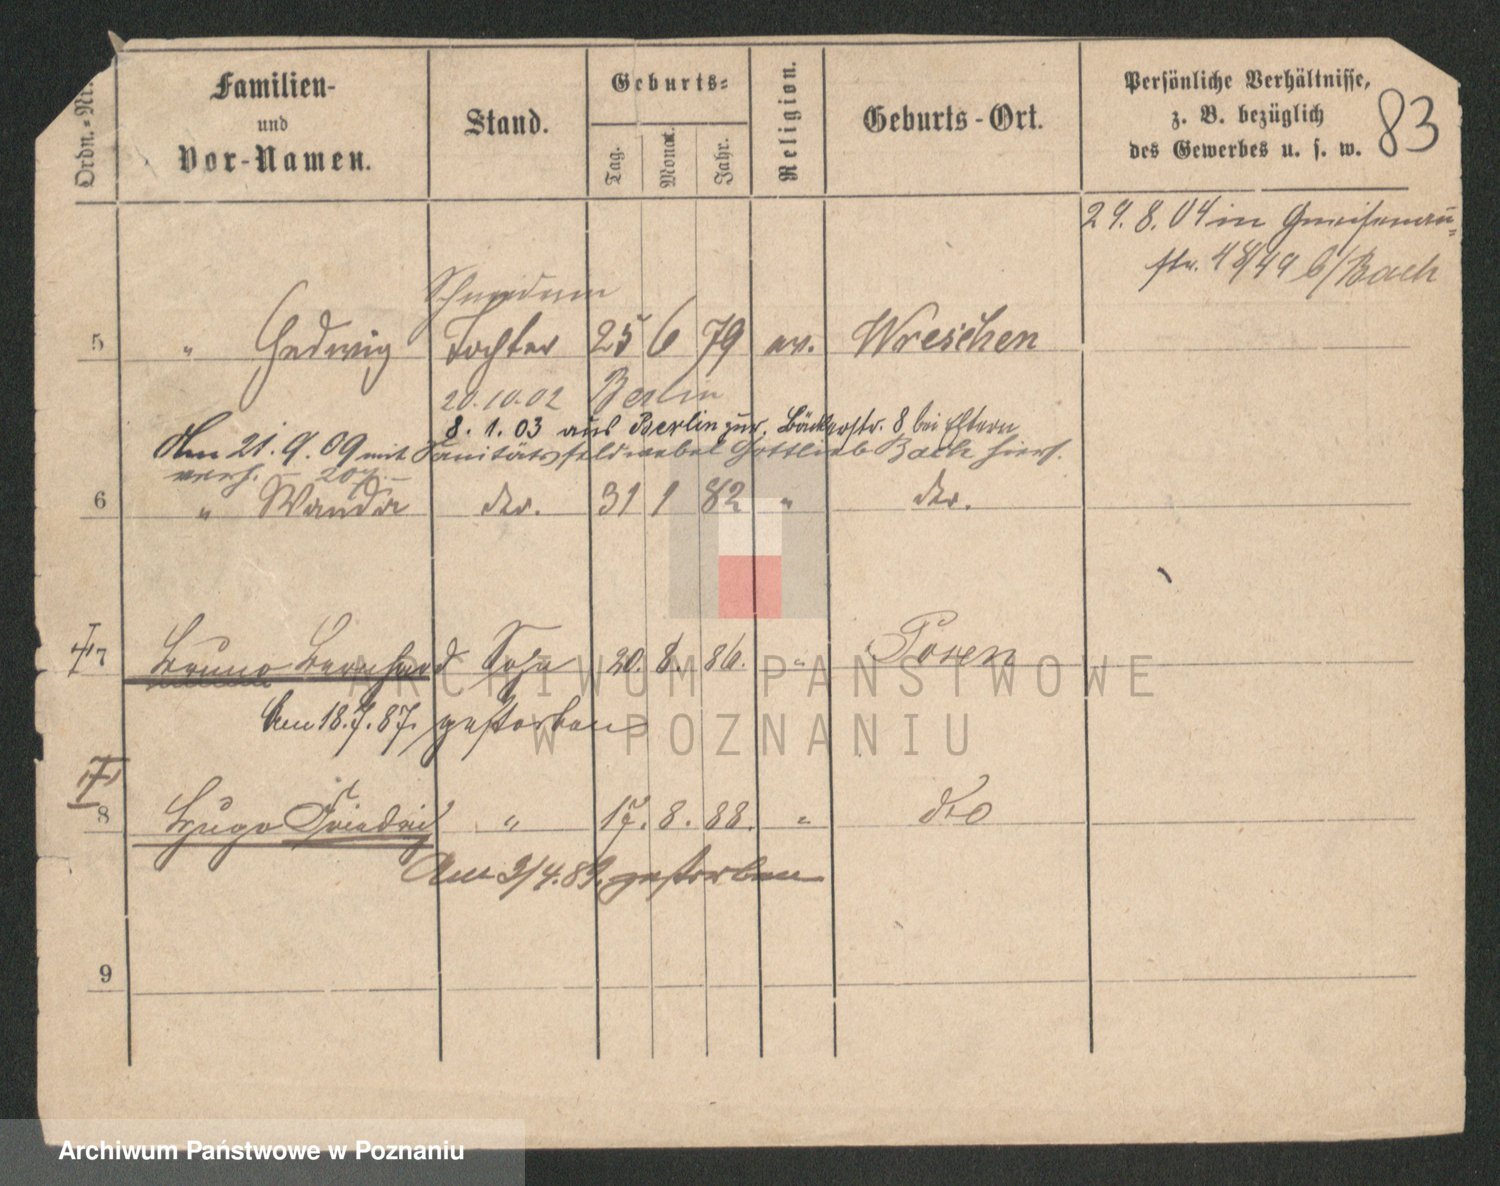 Ordn.-Nr.
Familien-
und
Vor-Namen.
Stand.
Geburts-
Tag.
Monat.
Jahr.
Religion.
Geburts-Ort.
Persönliche Verhältnisse,
z. B. bezüglich
des Gewerbes u. s. w.
83
29. 8. 04 in Gneisenau-
str. 48/49 b/Bach
Schneiderin
5 " Hedwig Tochter 25 6 79 ev. Wreschen
20.10.02 Berlin
8. 1. 03 aus Berlin zur. Bäckerstr. 8 bei Eltern
Am 21. 9. 09 mit Sanitätsfeldwebel Gottlieb Bach hiers.
verh.
6 " Wanda dto. 31 1 82 " dto.
7 Bruno Bernhard Sohn 20. 8. 86. " Posen
Am 18. 7. 87. gestorben
8 Hugo Friedrich " 17. 8. 88. " dto
Am 3/4. 89. gestorben
9
ARCHIWUM PAŃSTWOWE
W POZNANIU
Archiwum Państwowe w Poznaniu